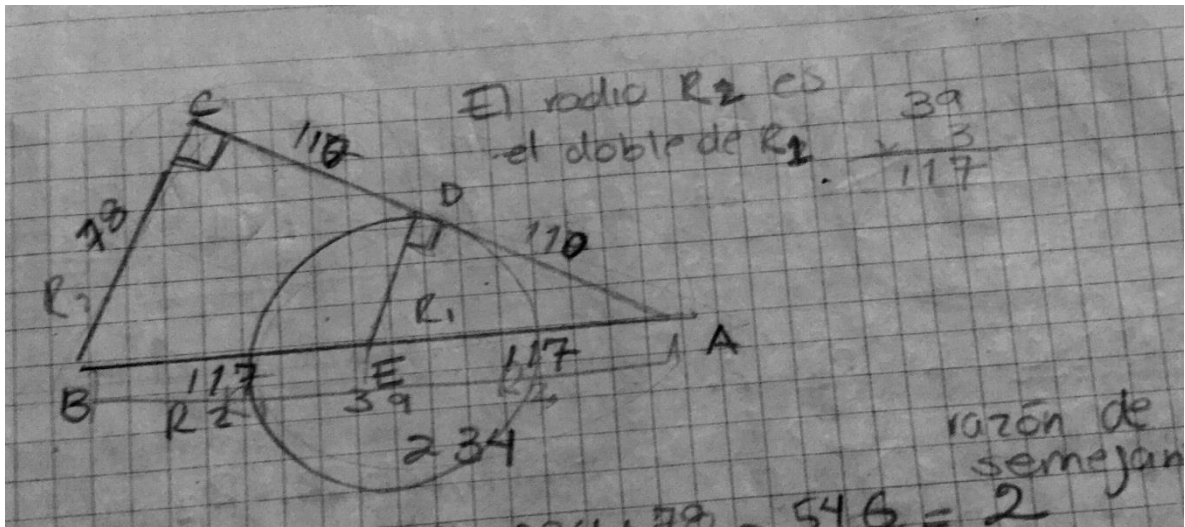 El radio R2 es
el doble de R1.
39
x 3
117
C
110
D
110
78
R1
A
B
117
E
117
R2
39
234
razón de
semejan
78 = 546 = 2